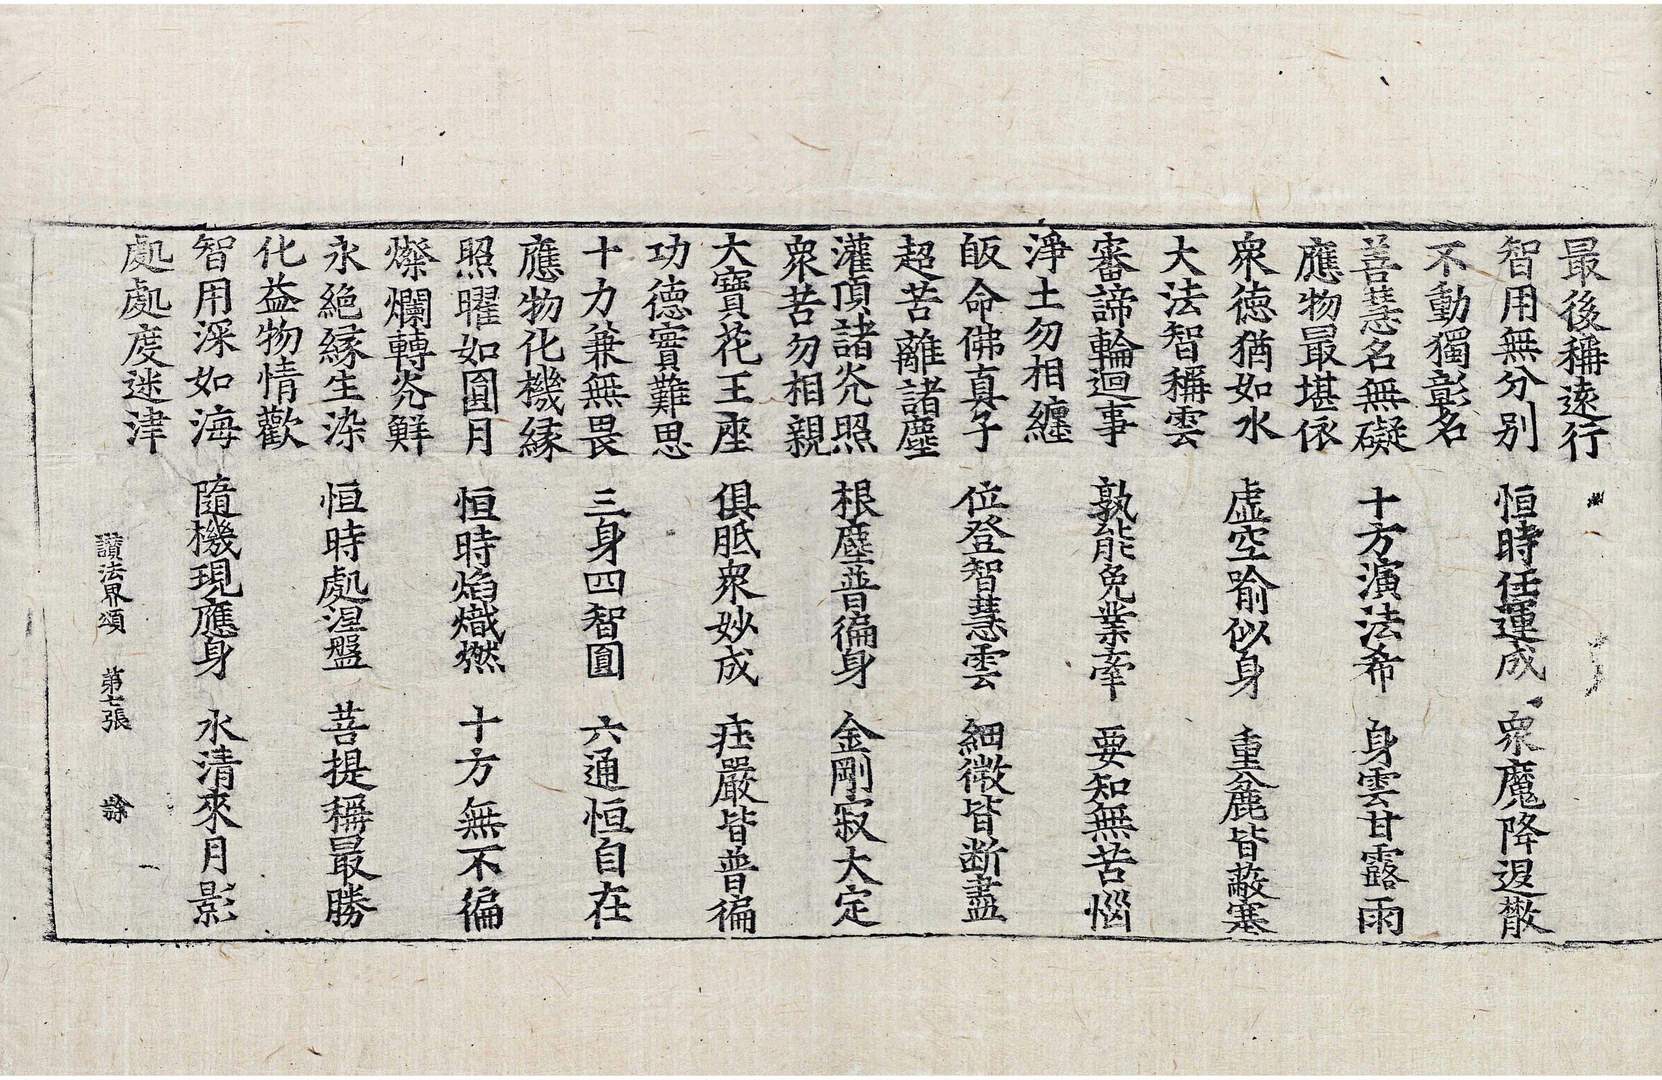 最後稱遠行
智用無分別 恒時任運成 衆魔降退散
不動獨彰名
善慧名無礙 十方演法希 身雲甘露雨
應物最堪依
衆德猶如水 虛空喻似身 重麁皆蔽塞
大法智稱雲
審諦輪迴事 孰能免業牽 要知無苦惱
淨土勿相纏
皈命佛真子 位登智慧雲 細微皆斷盡
超苦離諸塵
灌頂諸光照 根塵普徧身 金剛寂大定
衆苦勿相親
大寶花王座 俱胝衆妙成 莊嚴皆普徧
功德實難思
十力兼無畏 三身四智圓 六通恒自在
應物化機緣
照曜如圓月 恒時焰熾燃 十方無不徧
燦爛轉光鮮
永絕緣生染 恒時處涅盤 菩提稱最勝
化益物情歡
智用深如海 隨機現應身 水清來月影
處處度迷津
讃法界頌 第七張